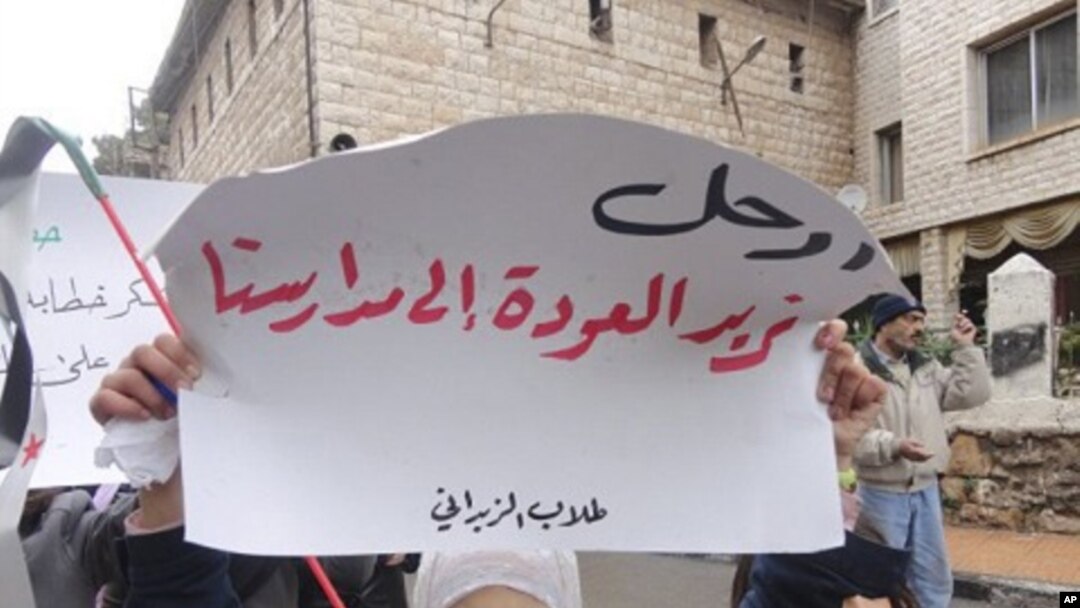 ارحل
نريد العودة إلى مدارسنا
طلاب الزبداني
خطابه
على
AP